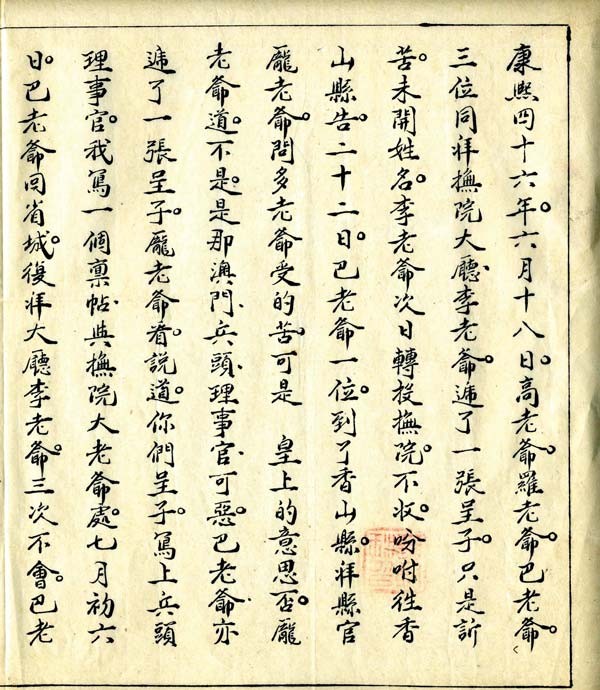 康熙四十六年。六月十八日。高老爺。羅老爺。巴老爺。
三位同拜撫院大廳李老爺。遞了一張呈子。只是訴
苦。未開姓名。李老爺次日轉投撫院。不收。吩咐徃香
山縣告。二十二日。巴老爺一位。到了香山縣。拜縣官
龐老爺。問多老爺受的苦。可是 皇上的意思否。龐
老爺道。不是。是那澳門兵頭理事官可惡。巴老爺亦
遞了一張呈子。龐老爺看說道。你們呈子。寫上兵頭
理事官。我寫一個稟帖。與撫院大老爺處。七月初六
日。巴老爺回省城。復拜大廳李老爺。三次不會。巴老